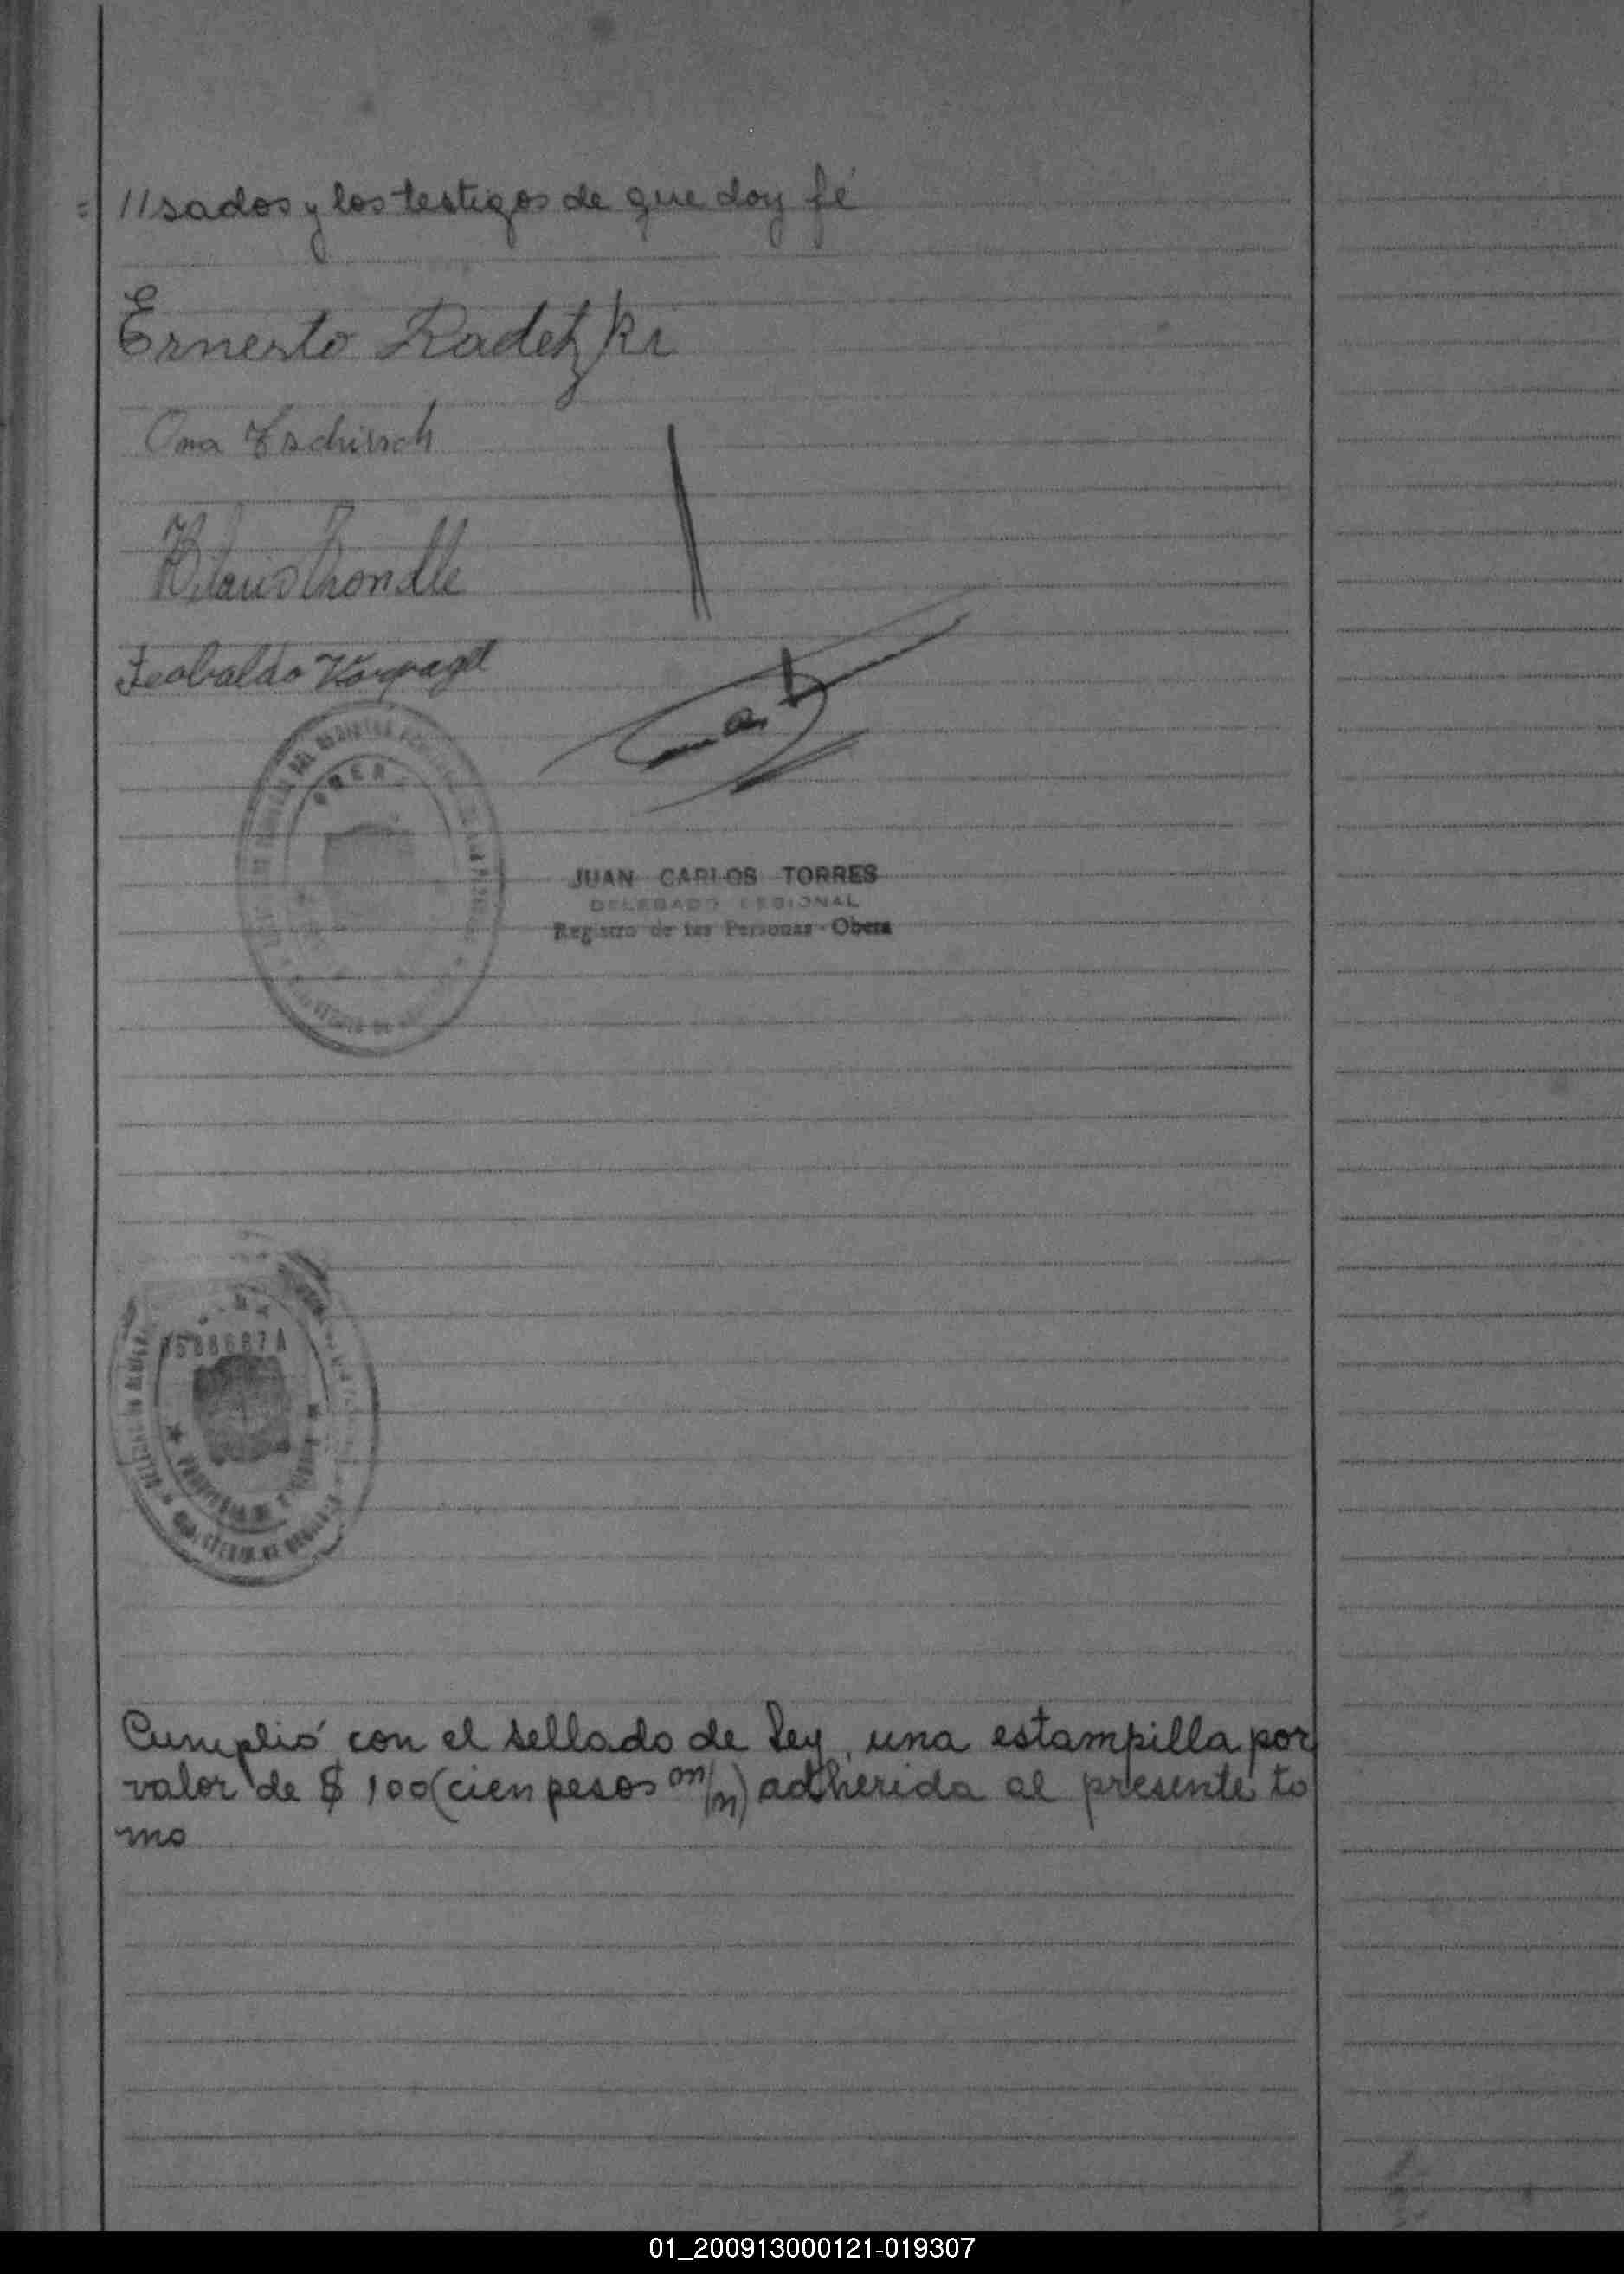 = //sados y los testigos de que doy fé
Ernesto Radetzki
Tschirsch
Teobaldo
OBERA
JUAN CARLOS TORRES
DELEGADO REGIONAL
Registro de las Personas - Obera
588687A
PROVINCIA DE
Cumplió con el sellado de Ley, una estampilla por
valor de $ 100 (cien pesos m/n) adherida al presente to
mo
01_200913000121-019307